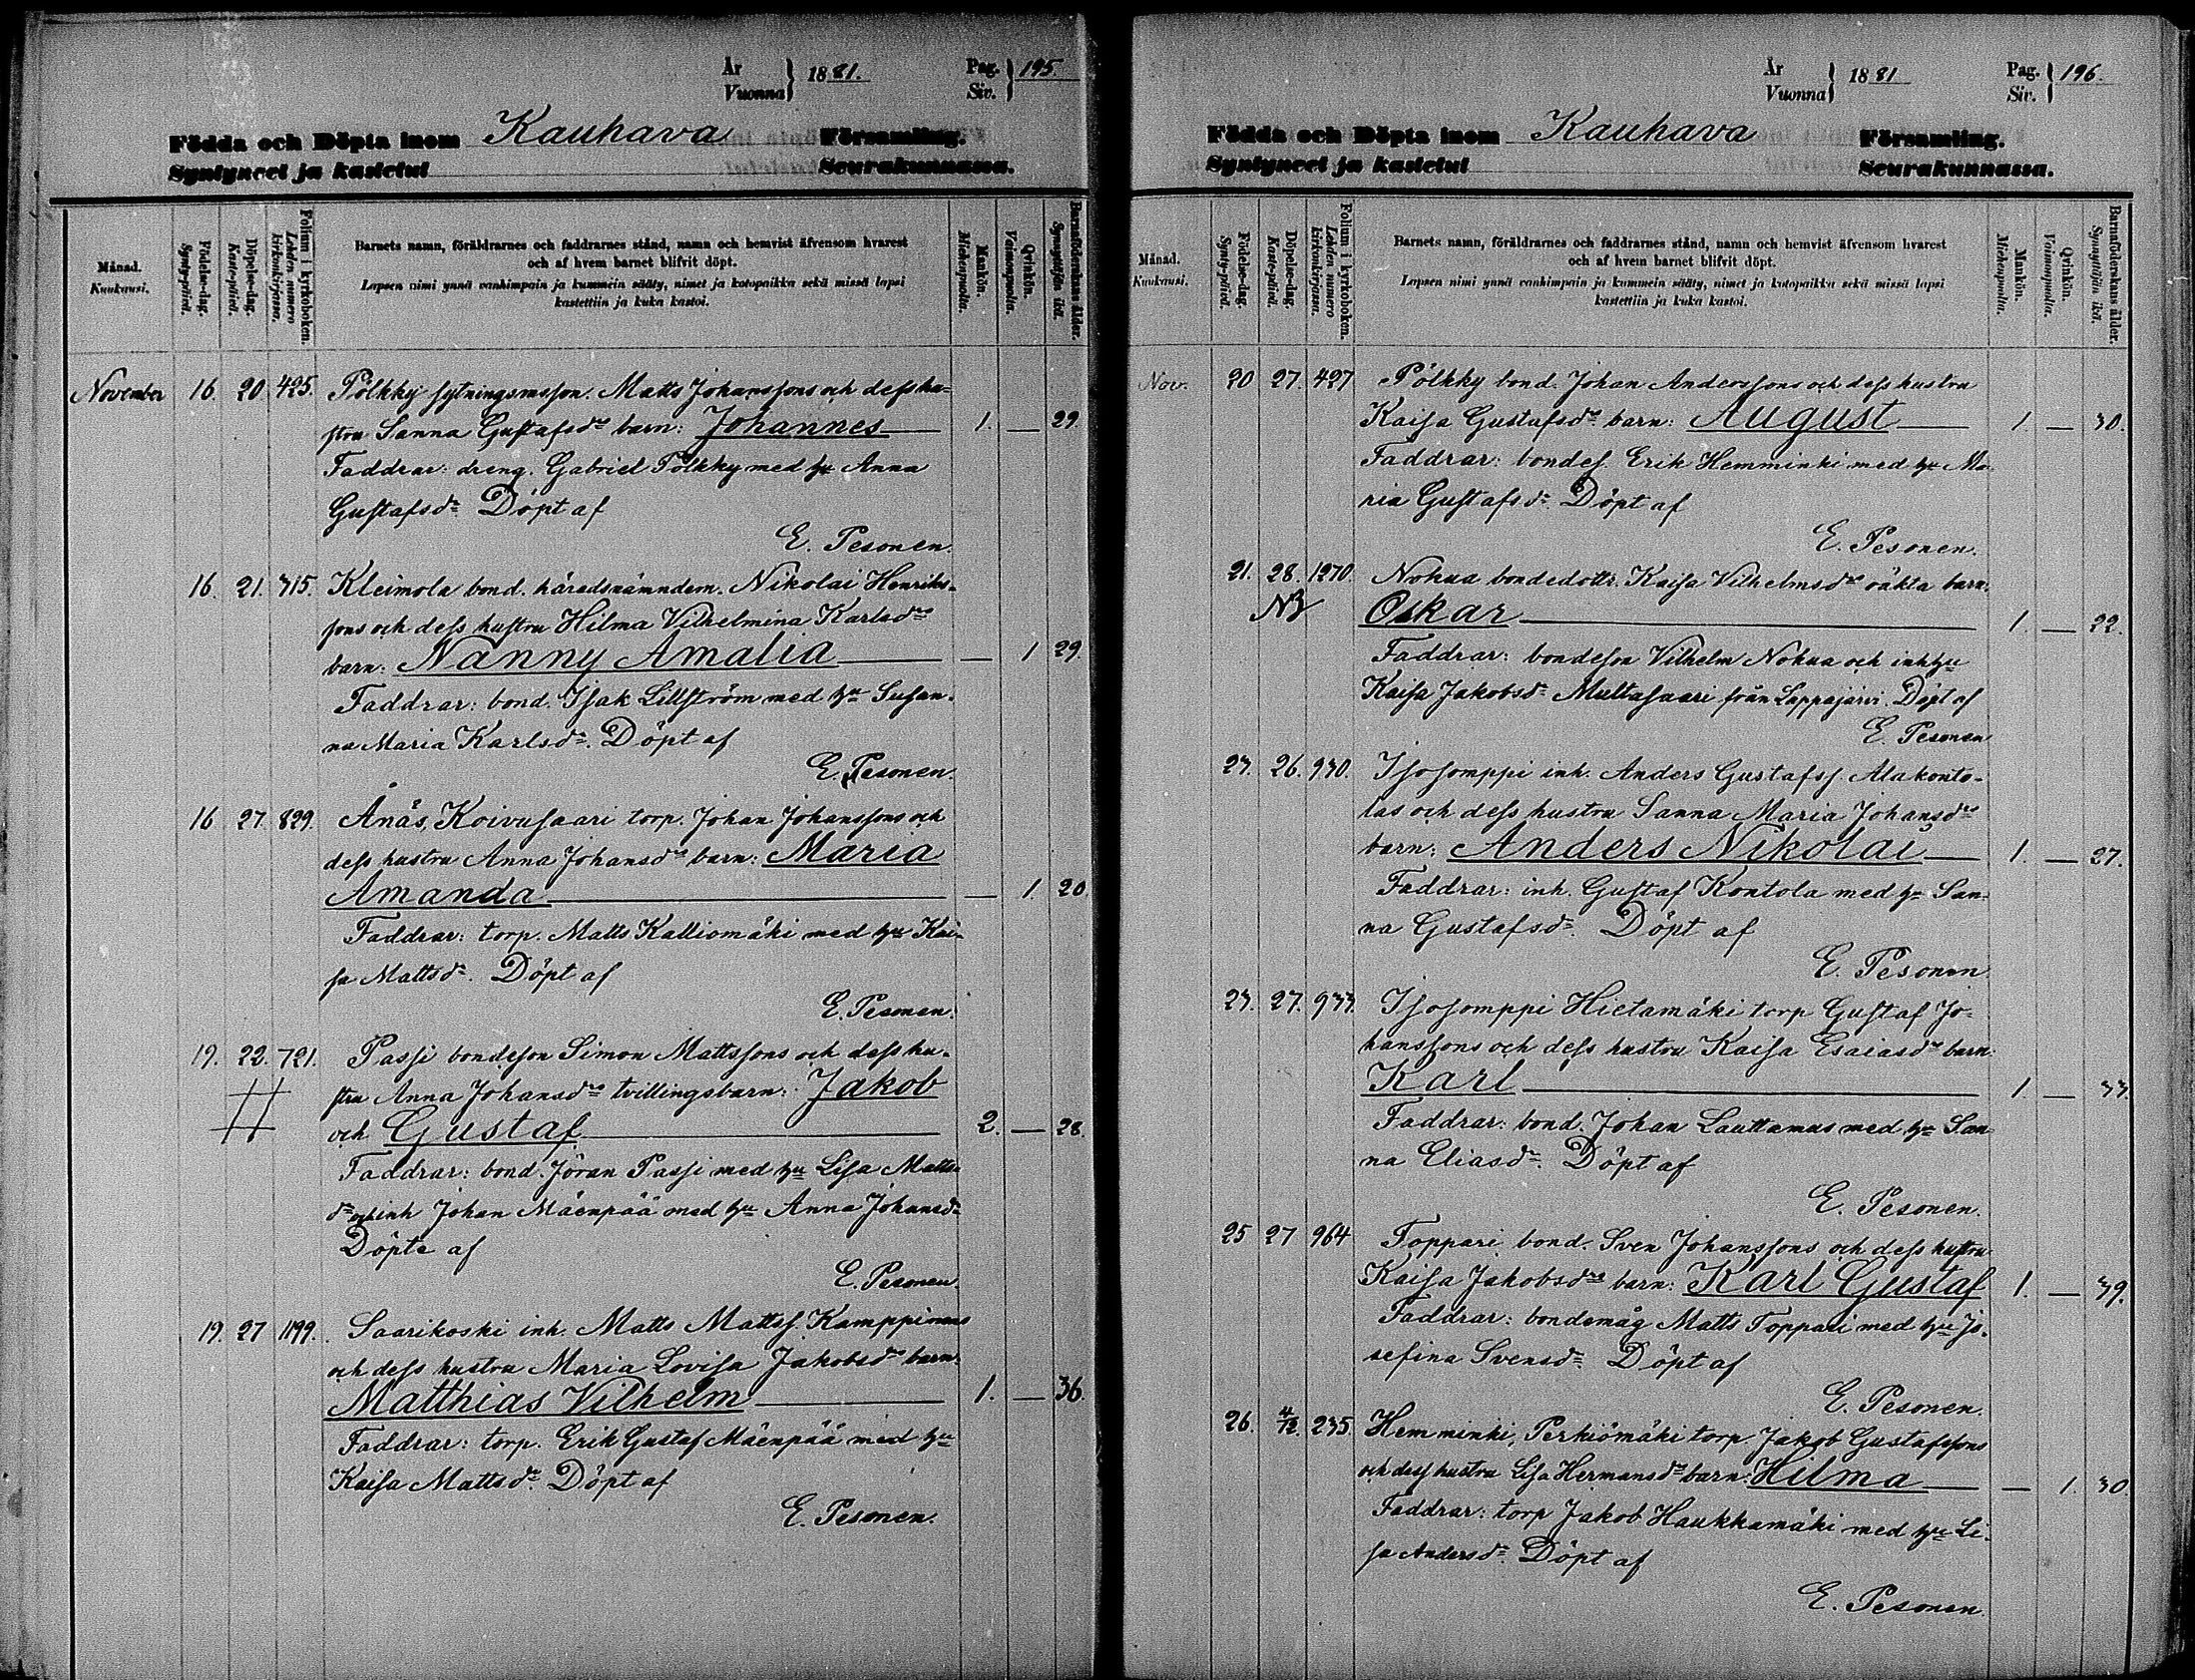 År
Vuonna } 1881.
Pag.
Siv. } 195.
Födda och Döpta inom Kauhava Församling.
Syntyneet ja kastetut Seurakunnassa.
Månad.
Kuukausi.
Födelse-dag.
Synty-päivä.
Döpelse-dag.
Kaste-päivä.
Folium i kyrkoboken.
Lehden numero kirkonkirjassa.
Barnets namn, föräldrarnes och faddrarnes stånd, namn och hemvist äfvensom hvarest
och af hvem barnet blifvit döpt.
Lapsen nimi ynnä vanhimpain ja kummein sääty, nimet ja kotopaikka sekä missä lapsi
kastettiin ja kuka kastoi.
Mankön.
Miehenpuolia.
Qvinkön.
Vaimonpuolia.
Barnföderskans ålder.
Synnyttäjän ikä.
November 16. 20. 425. Pölkky sytningsmsson. Matts Johanssons och dess hu-
stru Sanna Gustafsdrs barn: Johannes 1. — 29.
Faddrar: dreng. Gabriel Pölkky med hu Anna
Gustafsdr. Döpt af
E. Pesonen.
16. 21. 715. Kleimola bond. häradsnämndem. Nikolai Henriks-
sons och dess hustru Hilma Vilhelmina Karlsdrs
barn: Nanny Amalia — 1 29.
Faddrar: bond. Isak Lillström med hu Susan-
na Maria Karlsdr. Döpt af
E. Pesonen.
16 27. 829. Ånäs, Koivusaari torp. Johan Johanssons och
dess hustru Anna Johansdrs barn: Maria
Amanda — 1. 20.
Faddrar: torp. Matts Kalliomäki med hu Kai-
sa Mattsdr. Döpt af
E. Pesonen.
19. 22. 721. Passi bondeson Simon Mattssons och dess hu-
stru Anna Johansdrs tvillingsbarn: Jakob
och Gustaf 2. — 28.
Faddrar: bond. Jöran Passi med hu Lisa Matts-
dr och inh Johan Mäenpää med hu Anna Johansdr
Döpte af
E. Pesonen.
19. 27 1199. Saarikoski inh. Matts Mattss. Kamppinens
och dess hustru Maria Lovisa Jakobsdrs barn:
Matthias Vilhelm 1. — 36.
Faddrar: torp. Erik Gustaf Mäenpää med hu
Kaisa Mattsdr. Döpt af
E. Pesonen.
År
Vuonna } 1881
Pag.
Siv. } 196.
Födda och Döpta inom Kauhava Församling.
Syntyneet ja kastetut Seurakunnassa.
Månad.
Kuukausi.
Födelse-dag.
Synty-päivä.
Döpelse-dag.
Kaste-päivä.
Folium i kyrkoboken.
Lehden numero kirkonkirjassa.
Barnets namn, föräldrarnes och faddrarnes stånd, namn och hemvist äfvensom hvarest
och af hvem barnet blifvit döpt.
Lapsen nimi ynnä vanhimpain ja kummein sääty, nimet ja kotopaikka sekä missä lapsi
kastettiin ja kuka kastoi.
Mankön.
Miehenpuolia.
Qvinkön.
Vaimonpuolia.
Barnföderskans ålder.
Synnyttäjän ikä.
Nov. 20 27. 427 Pölkky bond. Johan Anderssons och dess hustru
Kaisa Gustafsdrs barn: August 1 — 30.
Faddrar: bondes. Erik Hemminki med hu Ma-
ria Gustafsdr. Döpt af
E. Pesonen.
21. 28. 1270. Nohua bondedottr. Kaisa Vilhelmsdrs oäkta barn:
NB Oskar 1. — 22.
Faddrar: bondeson Vilhelm Nohua och inhhu
Kaisa Jakobsdr Multasaari från Lappajärvi. Döpt af
E. Pesonen
23. 26. 930. Isosomppi inh. Anders Gustafss. Alakonto-
las och dess hustru Sanna Maria Johansdrs
barn: Anders Nikolai 1. — 27.
Faddrar: inh. Gustaf Kontola med hu San-
na Gustafsdr. Döpt af
E. Pesonen
23. 27. 933. Isosomppi Hietamäki torp Gustaf Jo-
hanssons och dess hustru Kaisa Esaiasdrs barn:
Karl 1. — 33.
Faddrar: bond. Johan Lauttamus med hu San-
na Eliasdr. Döpt af
E. Pesonen.
25 27 964 Toppari bond. Sven Johanssons och dess hustru
Kaisa Jakobsdrs barn: Karl Gustaf 1. — 39.
Faddrar: bondemåg Matts Toppari med hu Jo-
sefina Svensdr. Döpt af
E. Pesonen.
26. 4/12. 235. Hemminki, Perkiömäki torp. Jakob Gustafssons
och dess hustru Lisa Hermansdrs barn: Hilma — 1. 30.
Faddrar: torp Jakob Haukkamäki med hu Li-
sa Andersdr. Döpt af
E. Pesonen